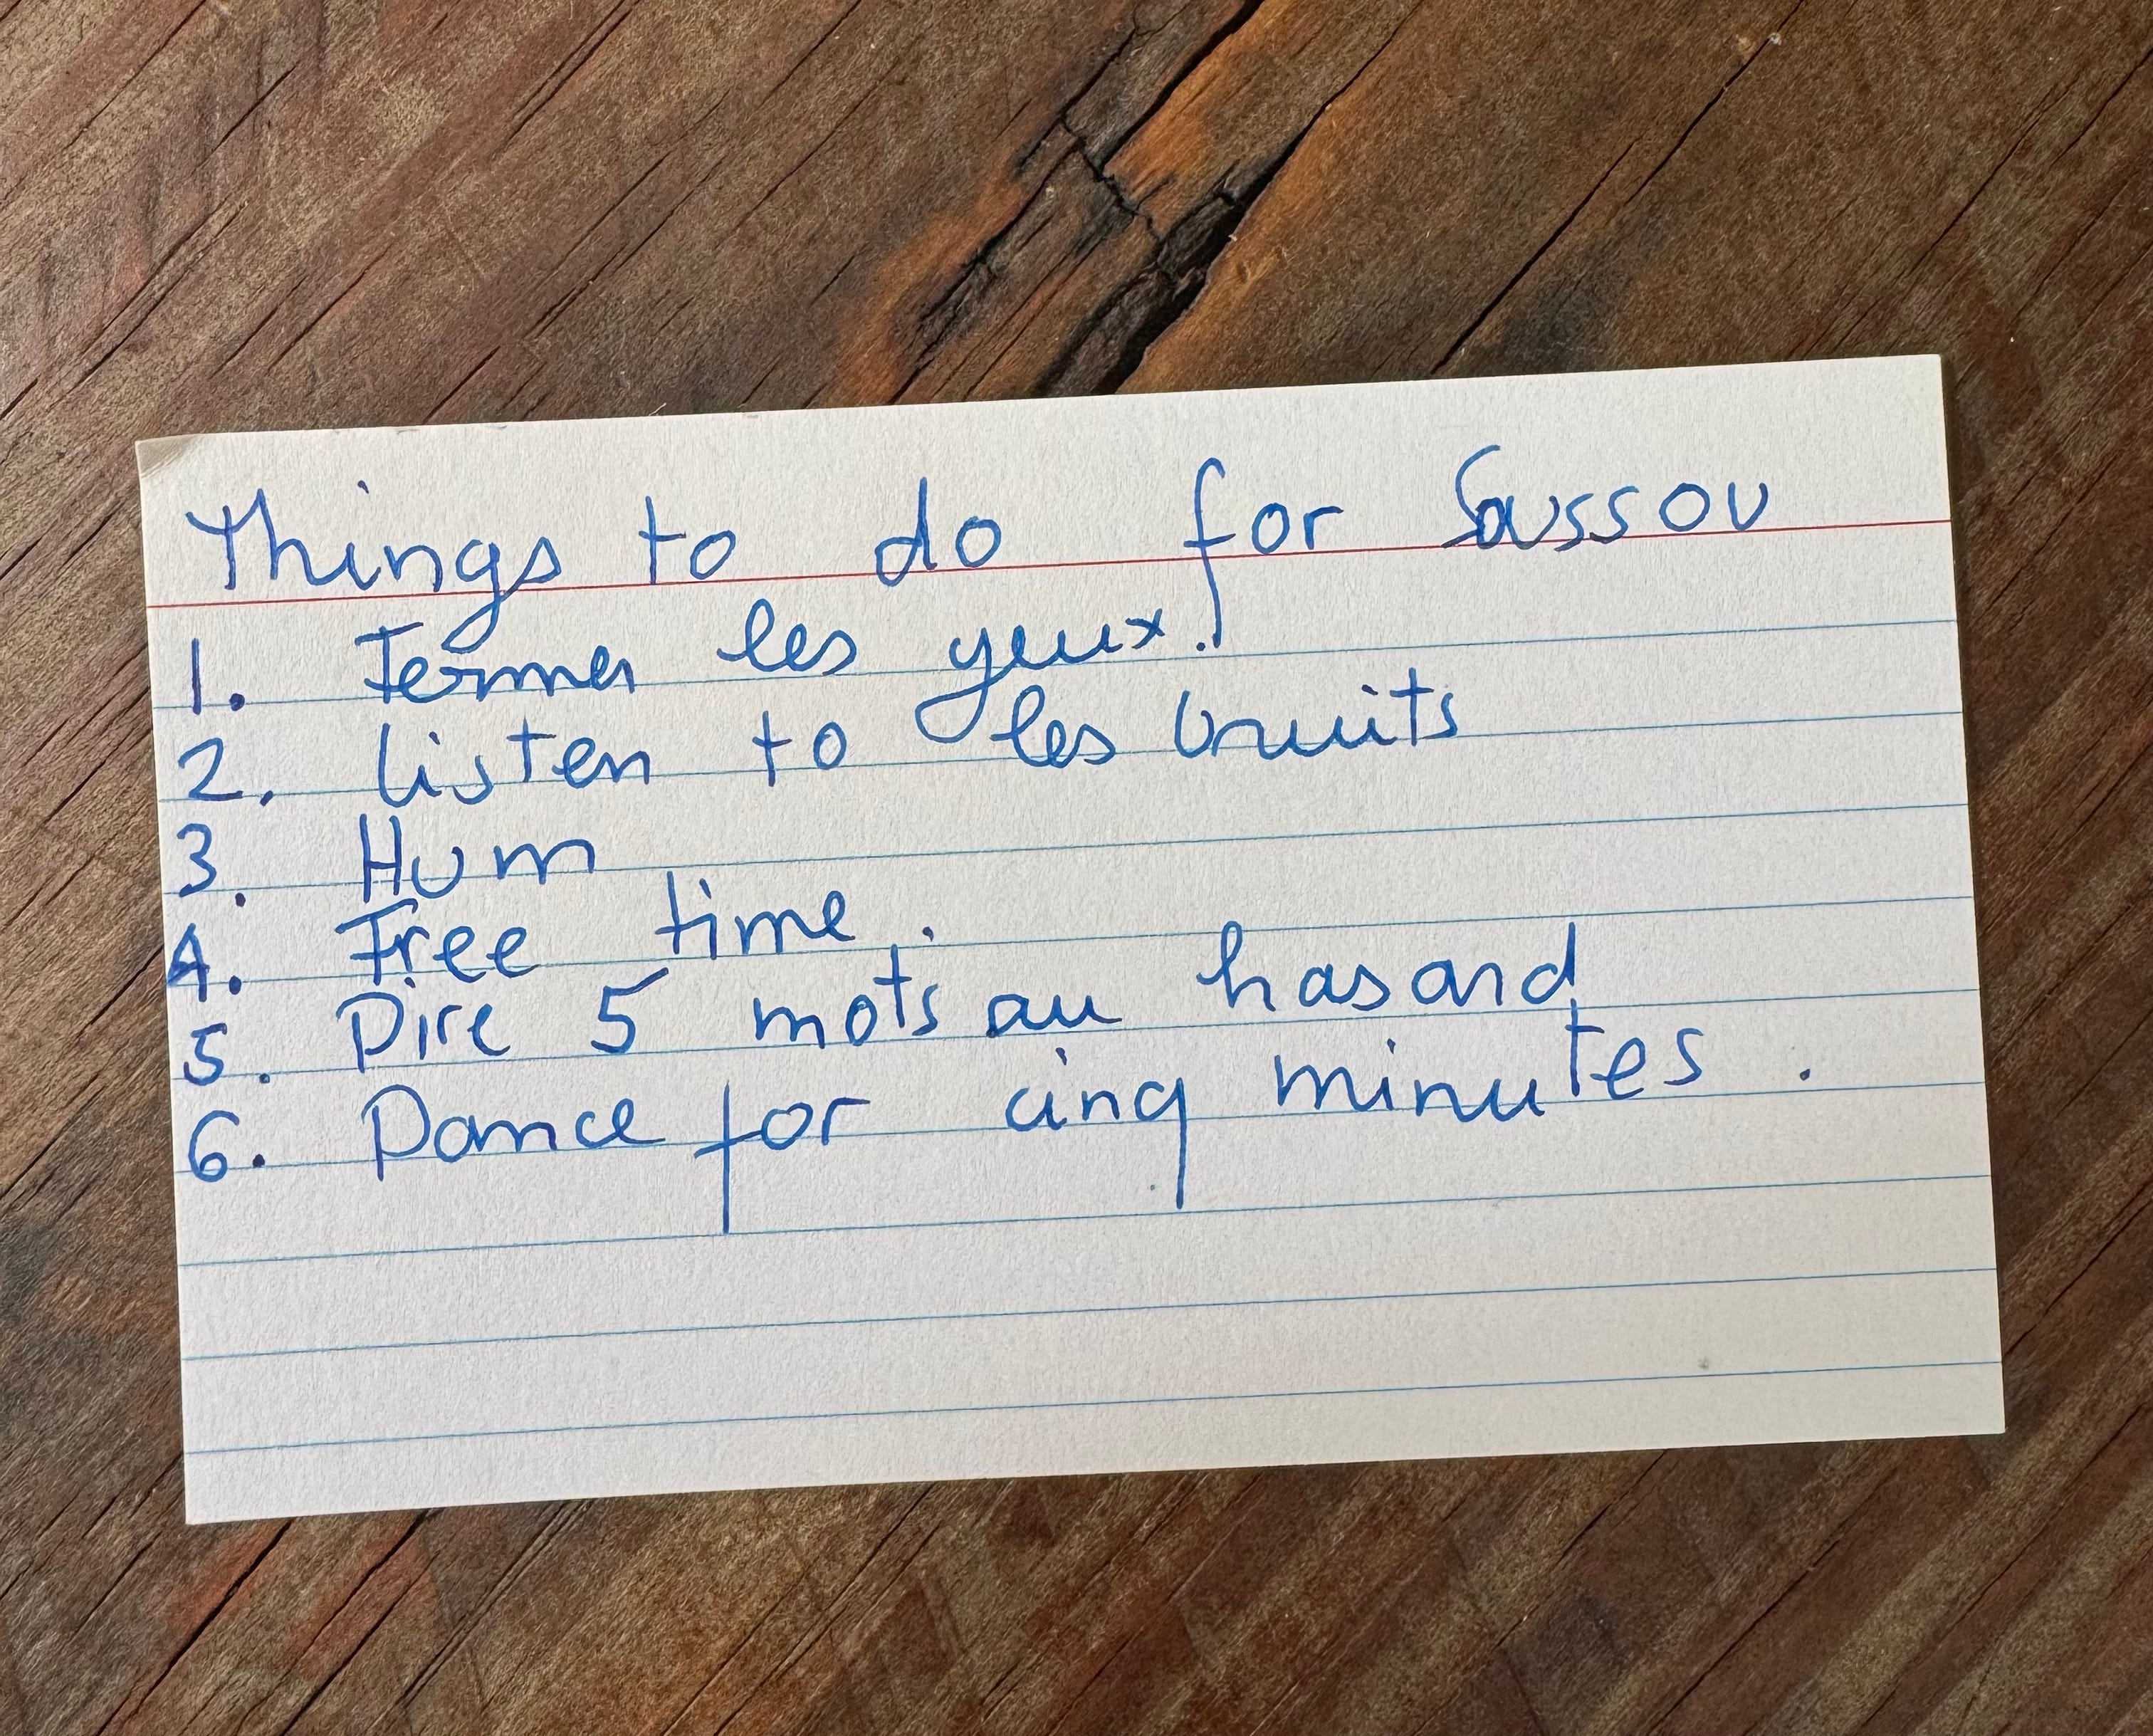 Things to do for Sussou
1. Fermer les yeux.
2. listen to les bruits
3. Hum
4. Free time.
5. Dire 5 mots au hasard
6. Dance for cinq minutes.